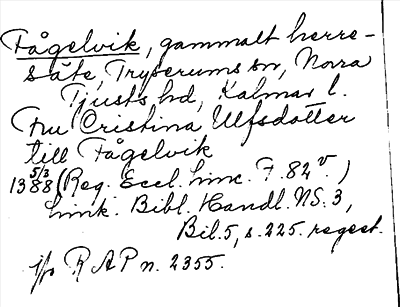 Fågelvik, gammalt herre-
säte, Tryserums sn, Norra
Tjusts hd, Kalmar l.
Fru Cristina Ulfsdotter
till Fågelvik
1388 5/3 (Reg. Eccl. Linc. F. 82 v.)
Link. Bibl. Handl. NS. 3,
Bil. 5, s. 225. regest.
R A P n. 2355.